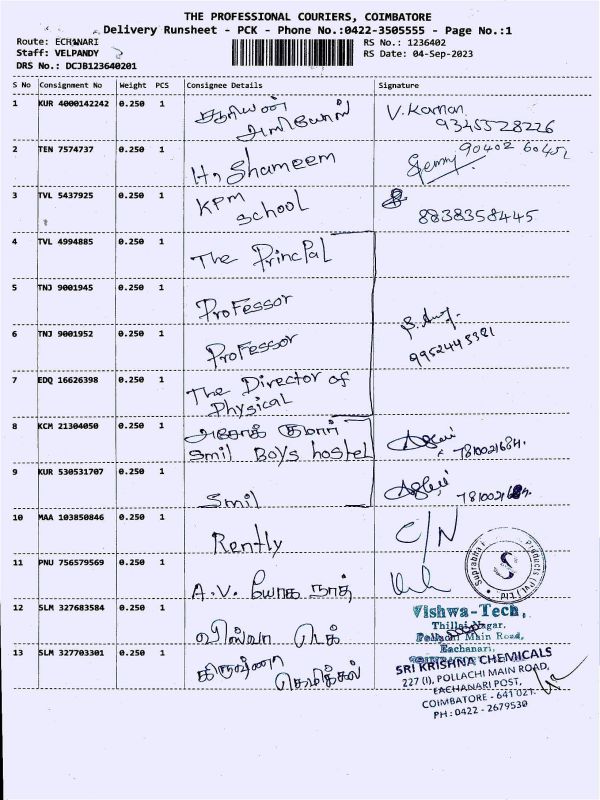 THE PROFESSIONAL COURIERS, COIMBATORE
Delivery Runsheet - PCK - Phone No.:0422-3505555 - Page No.:1
Route: ECHANARI RS No.: 1236402
Staff: VELPANDY RS Date: 04-Sep-2023
DRS No.: DCJB123640201
S No Consignment No Weight PCS Consignee Details Signature
1 KUR 4000142242 0.250 1 V. Kannan
9345528226
2 TEN 7574737 0.250 1 H, Shameem
3 TVL 5437925 0.250 1 KPM
School 8838358445
4 TVL 4994885 0.250 1 The PrincPal
5 TNJ 9001945 0.250 1 Professor
6 TNJ 9001952 0.250 1 Professor
9952445381
7 EDQ 16626398 0.250 1 The Director of
Physical
8 KCM 21304050 0.250 1 அசோக் குமார்
Smil Boys hostel 7810021684.
9 KUR 530531707 0.250 1 Smil 7810021684.
10 MAA 103850846 0.250 1 Rently C/N
11 PNU 756579569 0.250 1 A.V. யோக நாத்
Suprabha Products (Pvt) Ltd
S
12 SLM 327683584 0.250 1 வில்வா டெக்
Vishwa-Tech,
Thillai Nagar,
Pollachi Main Road,
Eachanari,
13 SLM 327703301 0.250 1 கிருஷ்ணா
கெமிக்கல்
SRI KRISHNA CHEMICALS
227 (I), POLLACHI MAIN ROAD,
EACHANARI POST,
COIMBATORE - 641 021.
PH : 0422 - 2679530